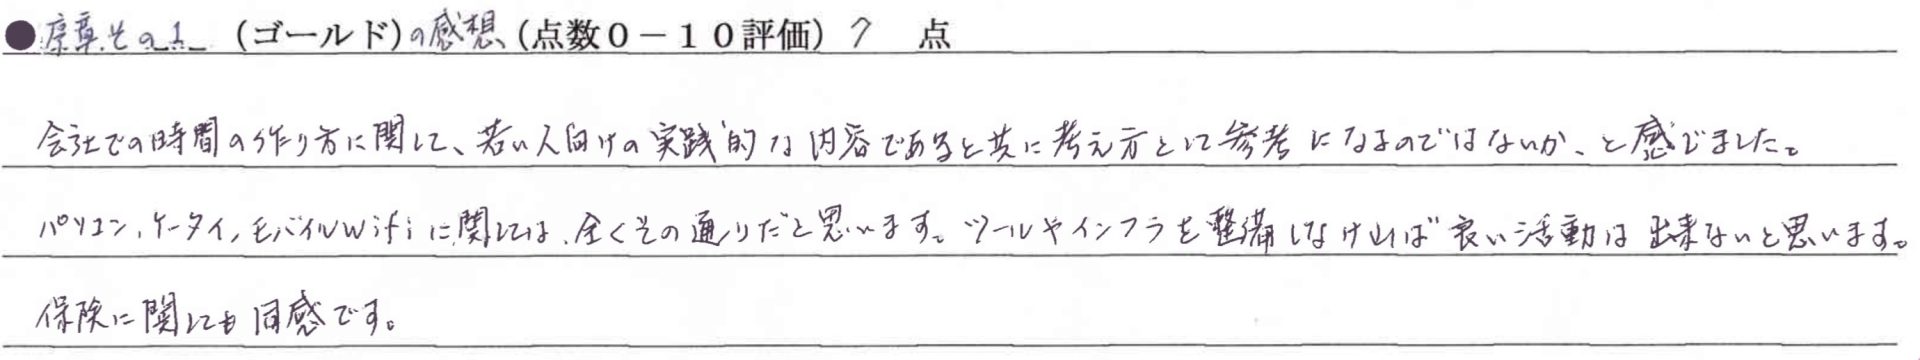 ●序章その1 (ゴールド)の感想(点数0－10評価) 7 点
会社での時間の作り方に関して、若い人向けの実践的な内容であると共に考え方として参考になるのではないか、と感じました。
パソコン、ケータイ、モバイルwifiに関しては、全くその通りだと思います。ツールやインフラを整備しなければ良い活動は出来ないと思います。
保険に関しても同感です。